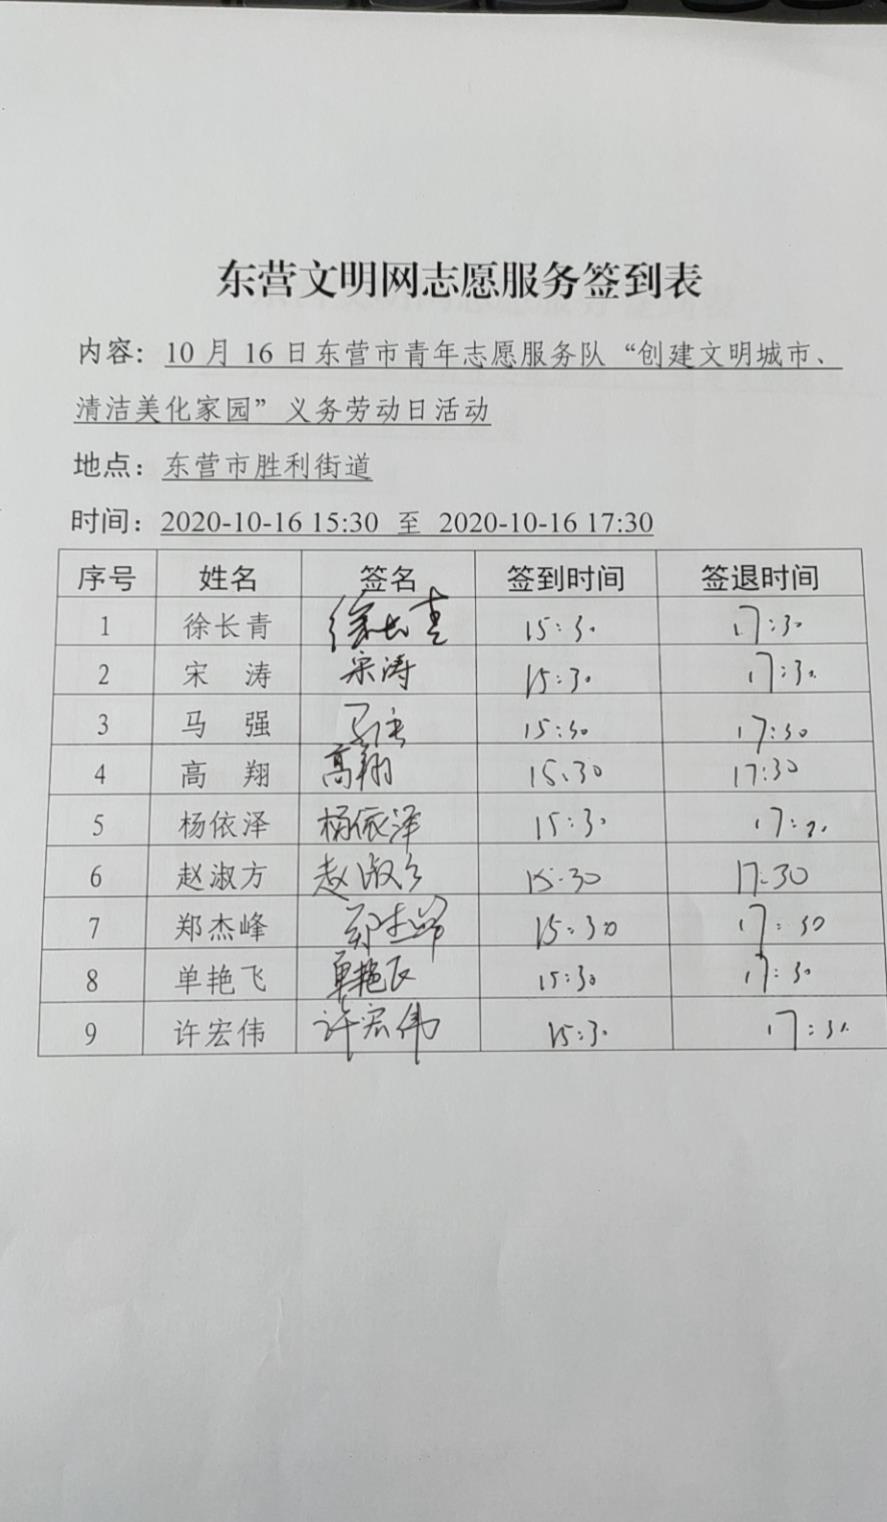 东营文明网志愿服务签到表
内容：10 月 16 日东营市青年志愿服务队“创建文明城市、
清洁美化家园”义务劳动日活动
地点：东营市胜利街道
时间：2020-10-16 15:30 至 2020-10-16 17:30
序号 姓名 签名 签到时间 签退时间
1 徐长青 徐长青 15:30 17:30
2 宋 涛 宋涛 15:30 17:30
3 马 强 马强 15:30 17:30
4 高 翔 高翔 15:30 17:30
5 杨依泽 杨依泽 15:30
6 赵淑方 赵淑方 15:30 17:30
7 郑杰峰 郑杰峰 15:30 17:30
8 单艳飞 单艳飞 15:30 17:30
9 许宏伟 许宏伟 15:30 17:30